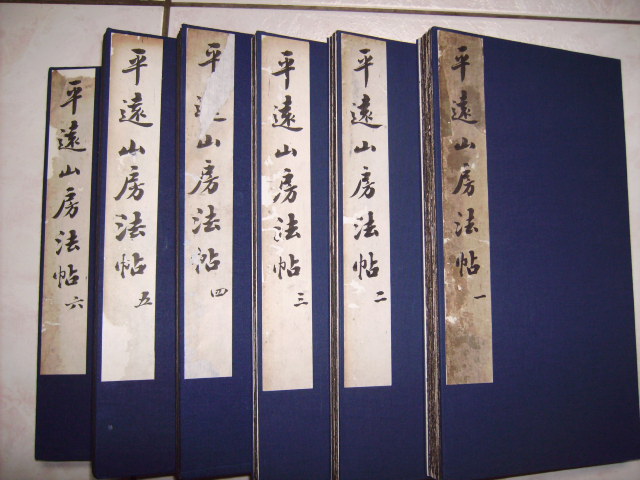 平遠山房法帖 一
平遠山房法帖 二
平遠山房法帖 三
平山房法帖 四
平遠山房法帖 五
平遠山房法帖 六